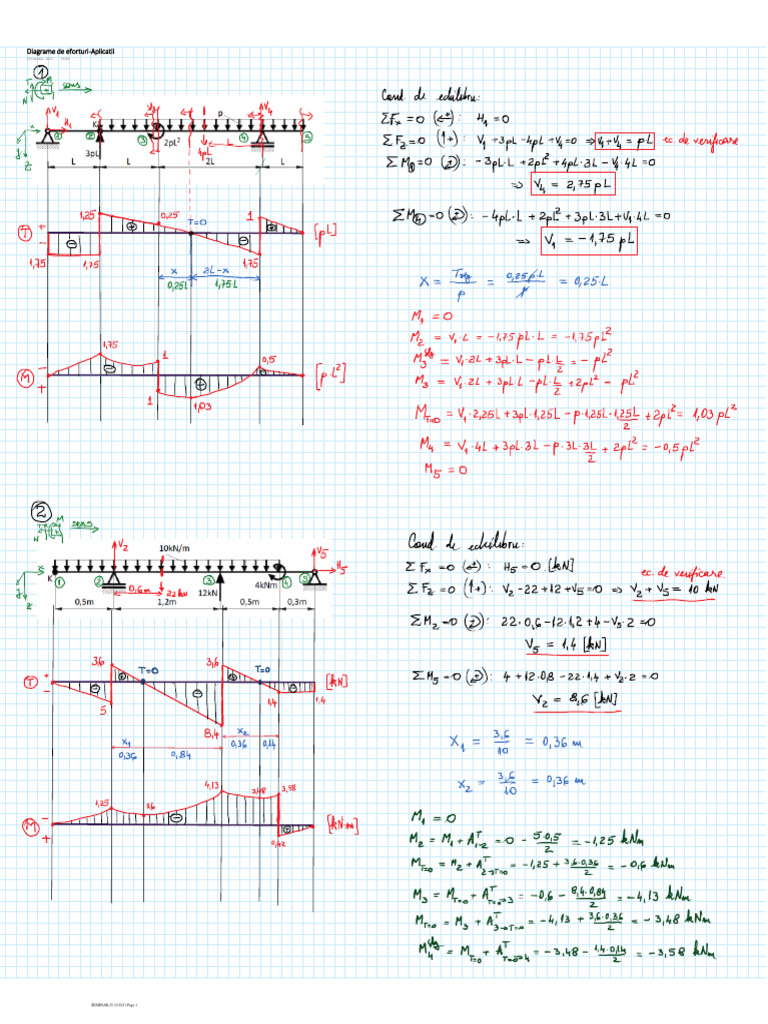 Diagrame de eforturi-Aplicatii
1
T M sens
N
V₁ H₁ K 3pL 2pL² 4pL p V₄
x y z
1 2 3 4 5
L L 2L L
T + −
1,25 0,25 T=0 1 [pL]
1,75 1,75 1,75
x 2L-x
0,25L 1,75L
M − +
1,75 1 0,5 [p·L²]
1 1,03
Cond de echilibru:
ΣFx = 0 (±): H₁ = 0
ΣFz = 0 (↑+): V₁ + 3pL - 4pL + V₄ = 0 ⇒ V₁+V₄ = pL ec de verificare
ΣM₁ = 0: -3pL·L + 2pL² + 4pL·3L - V₄·4L = 0
⇒ V₄ = 2,75 pL
ΣM₄ = 0: -4pL·L + 2pL² + 3pL·3L + V₁·4L = 0
⇒ V₁ = -1,75 pL
= 0,25pL / p = 0,25·L
M₁ = 0
M₂ = V₁·L = -1,75pL·L = -1,75pL²
M₃ˢᵗᵍ = V₁·2L + 3pL·L - pL·L/2 = -pL²
M₃ = V₁·2L + 3pL·L - pL·L/2 + 2pL² = pL²
M_T=0 = V₁·2,25L + 3pL·1,25L - p·1,25L·1,25L/2 + 2pL² = 1,03 pL²
M₄ = V₁·4L + 3pL·3L - p·3L·3L/2 + 2pL² = -0,5pL²
M₅ = 0
2
T M sens
N
V₂ 10kN/m V₅
K x H₅
1 2 3 4 5
0,6m 22kN 12kN 4kNm
0,5m 1,2m 0,5m 0,3m
T + −
3,6 T=0 3,6 T=0 [kN]
5 8,4 1,4 1,4
x₁ x₂
0,36 0,84 0,36 0,14
M − +
1,25 0,6 4,13 3,48 3,58 [kN·m]
0,42
Cond de echilibru:
ΣFx = 0 (±): H₅ = 0 [kN]
ec. de verificare
ΣFz = 0 (↑+): V₂ - 22 + 12 + V₅ = 0 ⇒ V₂ + V₅ = 10 kN
ΣM₂ = 0: 22·0,6 - 12·1,2 + 4 - V₅·2 = 0
V₅ = 1,4 [kN]
ΣM₅ = 0: 4 + 12·0,8 - 22·1,4 + V₂·2 = 0
V₂ = 8,6 [kN]
x₁ = 3,6/10 = 0,36 m
x₂ = 3,6/10 = 0,36 m
M₁ = 0
M₂ = M₁ + Aᵀ₁₋₂ = 0 - 5·0,5/2 = -1,25 kNm
M_T=0 = M₂ + Aᵀ₂→T=0 = -1,25 + 3,6·0,36/2 = -0,6 kNm
M₃ = M_T=0 + Aᵀ_T=0→3 = -0,6 - 8,4·0,84/2 = -4,13 kNm
M_T=0 = M₃ + Aᵀ₃→T=0 = -4,13 + 3,6·0,36/2 = -3,48 kNm
M₄ˢᵗᵍ = M_T=0 + Aᵀ_T=0→4 = -3,48 - 1,4·0,14/2 = -3,58 kNm